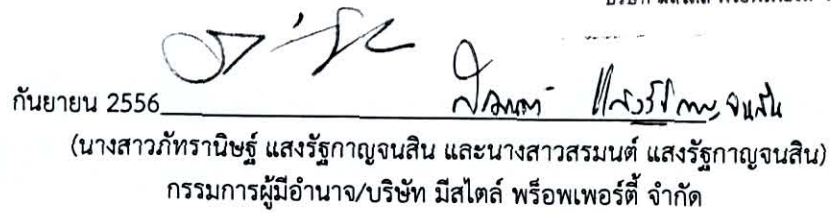 กันยายน 2556 สรมนต์ แสงรัฐกาญจนสิน
(นางสาวภัทรานิษฐ์ แสงรัฐกาญจนสิน และนางสาวสรมนต์ แสงรัฐกาญจนสิน)
กรรมการผู้มีอำนาจ/บริษัท มีสไตล์ พร็อพเพอร์ตี้ จำกัด